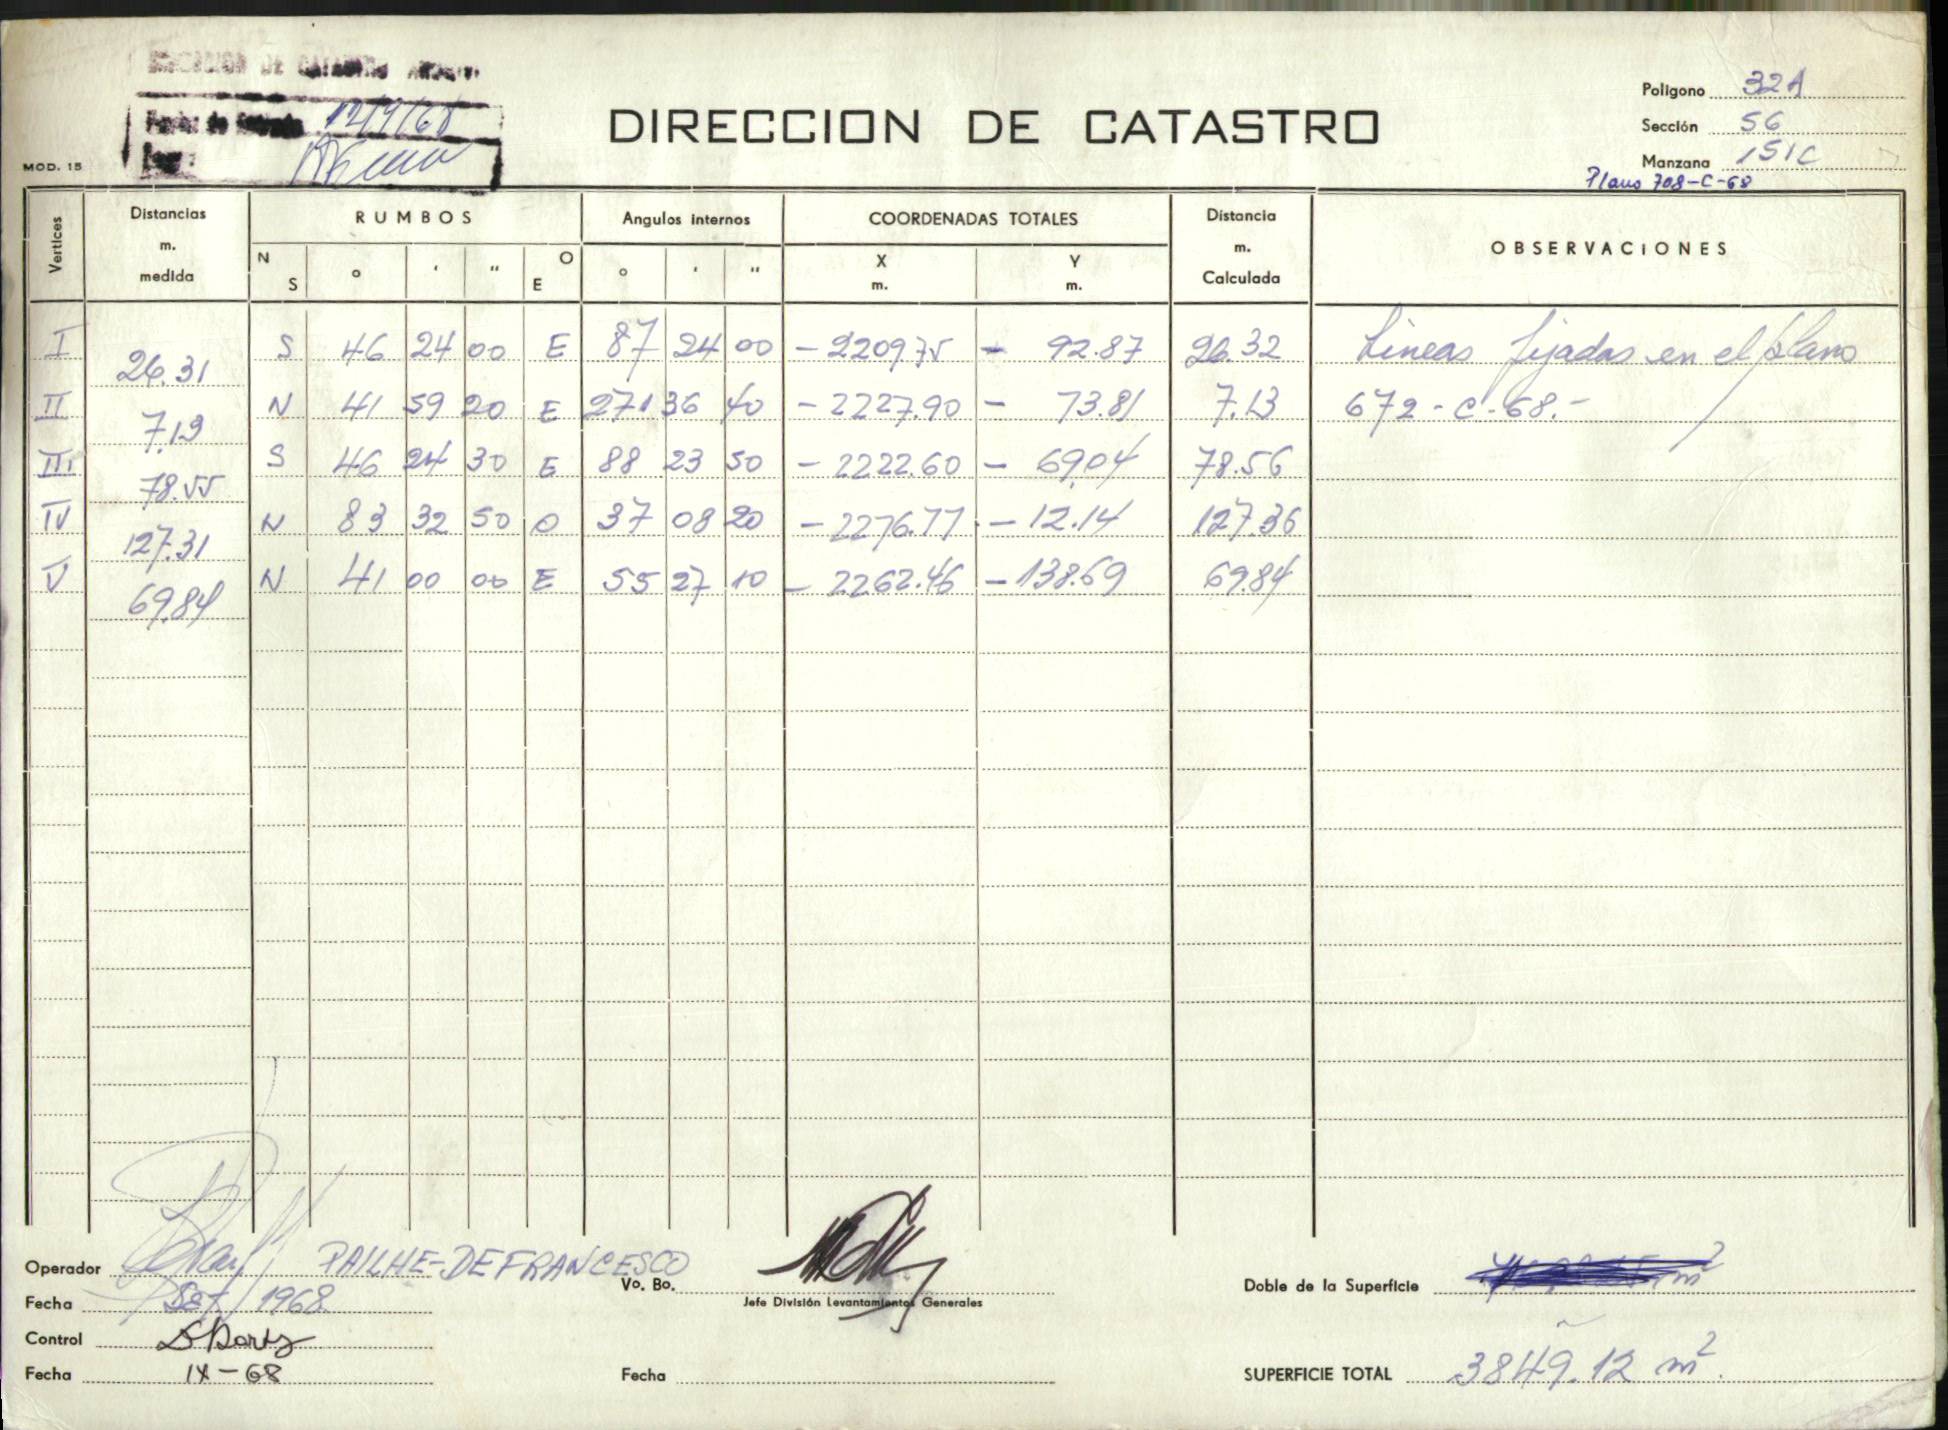 DIRECCION DE CATASTRO
12/9/68
MOD. 15
DIRECCION DE CATASTRO
Polígono 32A
Sección 56
Manzana 151C
Plano 708-C-68
Vertices Distancias m. medida RUMBOS Angulos internos COORDENADAS TOTALES Distancia m. Calculada OBSERVACIONES
N S ° ' " O E ° ' " X m. Y m.
I S 46 24 00 E 87 24 00 -2209.75 - 92.87 26.32 Líneas fijadas en el plano
26.31
II N 41 59 20 E 271 36 40 -2227.90 - 73.81 7.13 672-C-68.-
7.13
III S 46 24 30 E 88 23 50 -2222.60 - 69.04 78.56
78.55
IV N 83 32 50 O 37 08 20 -2276.77 -12.14 127.36
127.31
V N 41 00 00 E 55 27 10 -2262.46 -138.69 69.84
69.84
Operador PAILHE-DEFRANCESCO
Vo. Bo.
Jefe División Levantamientos Generales
Doble de la Superficie m²
Fecha Set/1968
Control
Fecha IX-68
Fecha
SUPERFICIE TOTAL 3849.12 m².